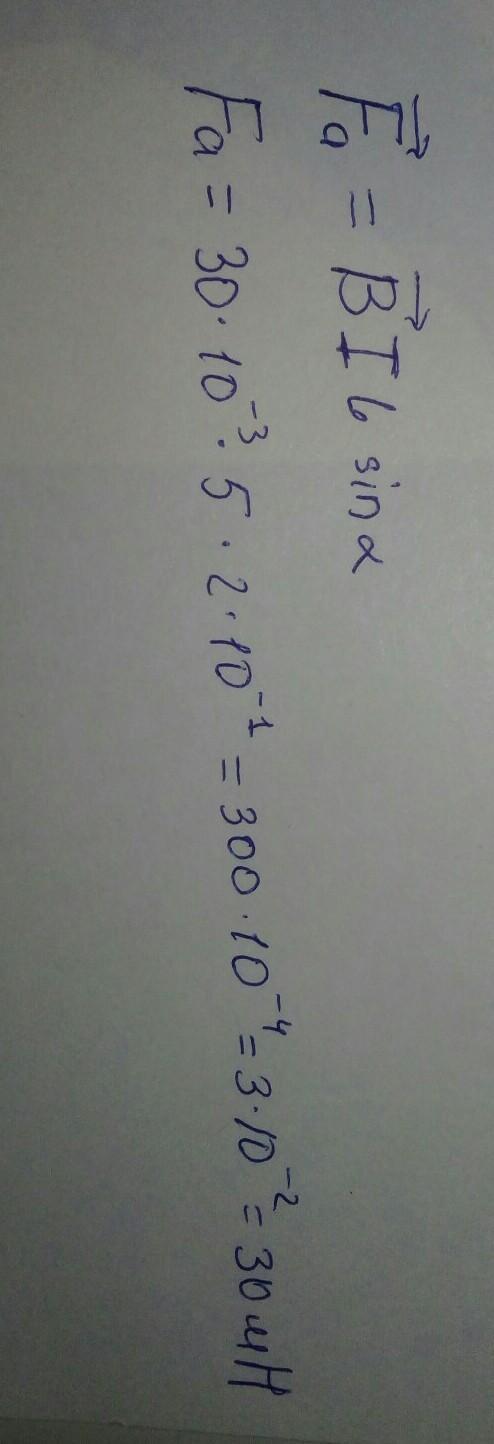 F⃗a = B⃗ I l sin α
Fa = 30 · 10⁻³ · 5 · 2 · 10⁻¹ = 300 · 10⁻⁴ = 3 · 10⁻² = 30 мН